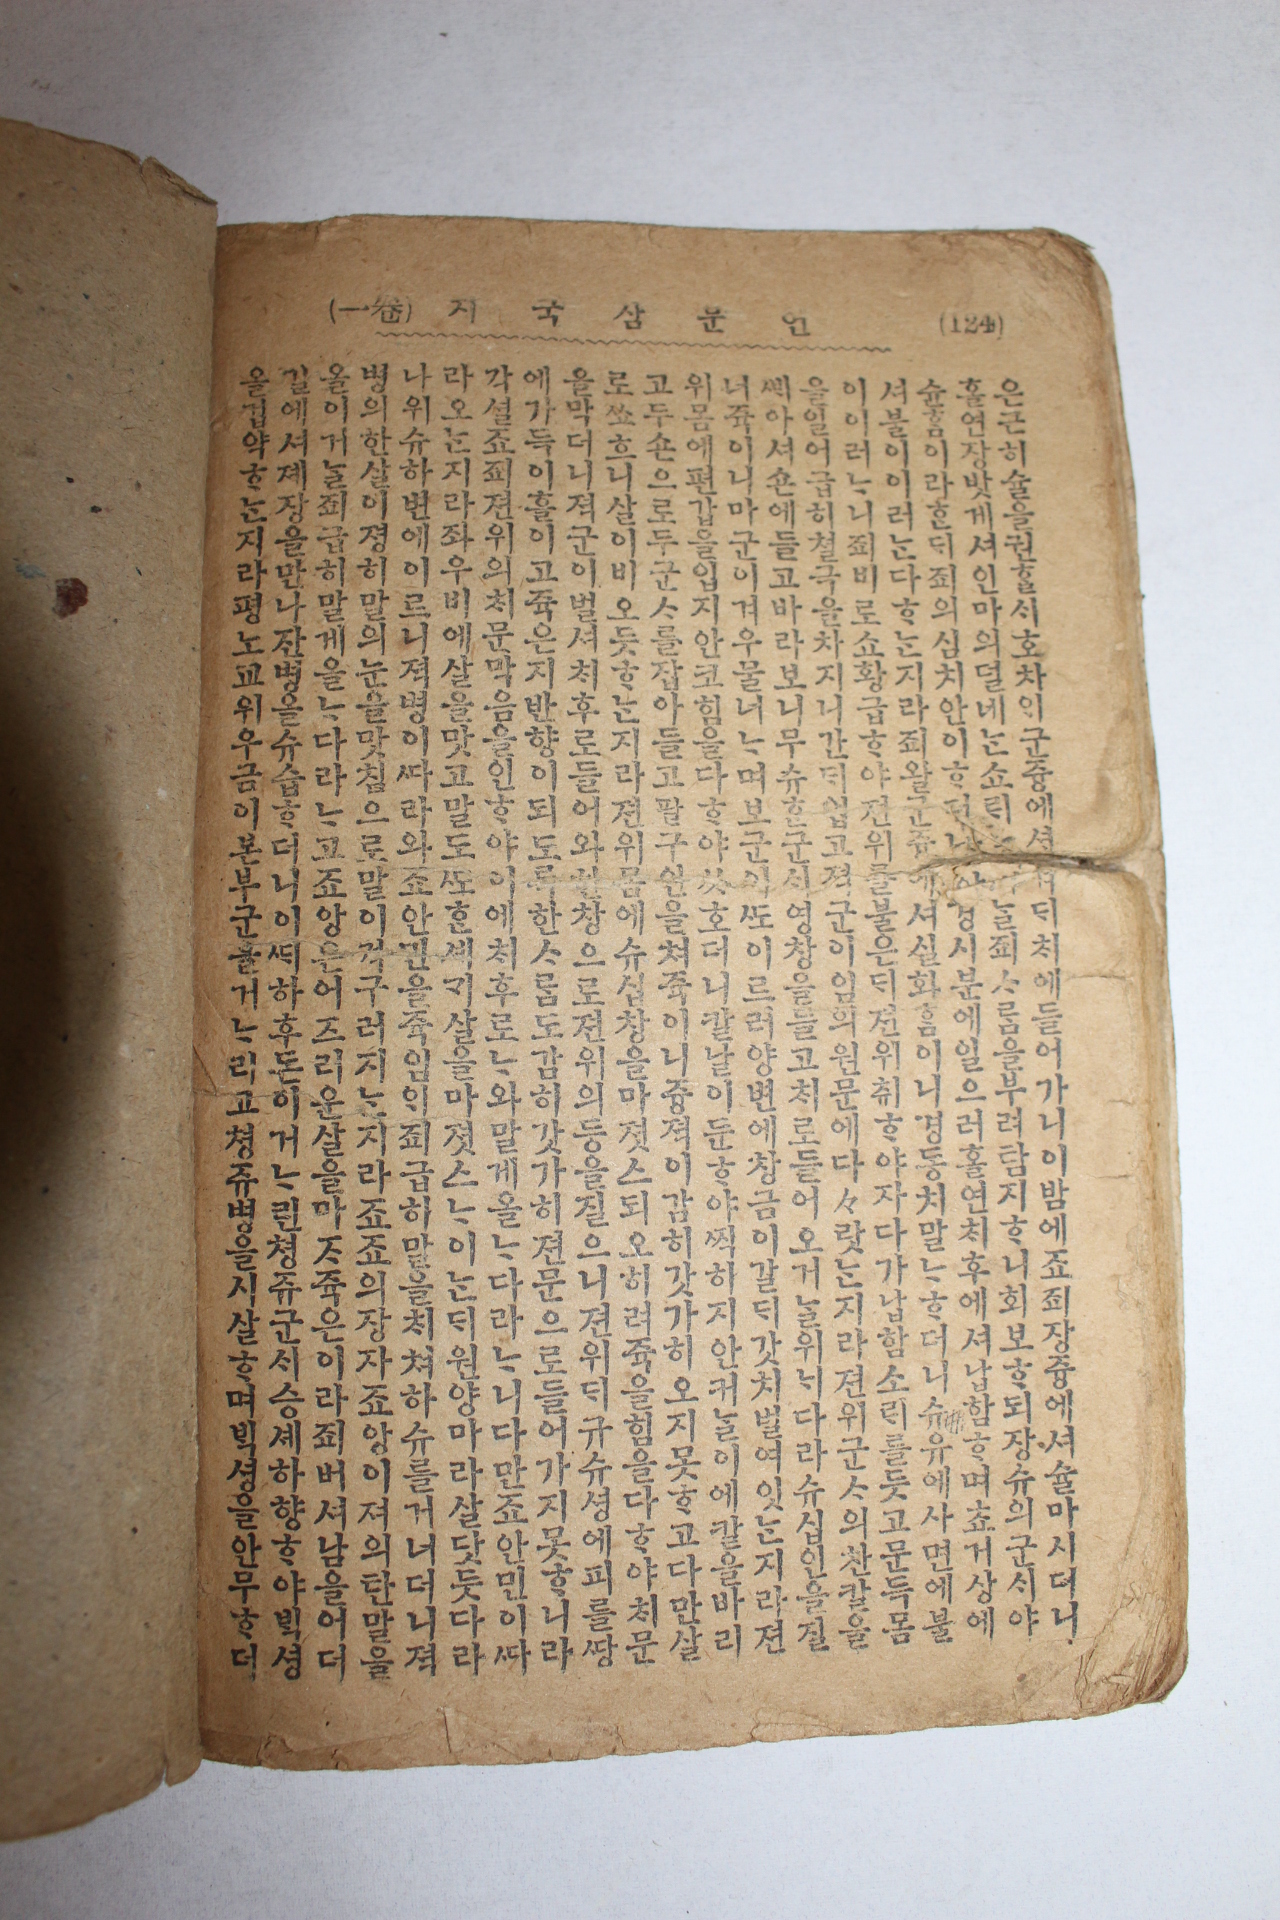 (124) 언문삼국지 (一卷)
은근히술을권할시호차의군즁에셔ᄃᆡᄎᆡ에들어가니이밤에죠죄쟝즁에셔슐마시더니
홀연쟝밧게셔인마의뎔네ᄂᆞᆫ쇼ᄅᆡ ᄂᆞᆯ죄ᄉᆞ람을부려탐지ᄒᆞ니회보ᄒᆞ되쟝슈의군ᄉᆡ야
슌ᄒᆞᆷ이라ᄒᆞᆫᄃᆡ죄의심치안이ᄒᆞ 경시분에일으러홀연ᄎᆡ후에셔납함ᄒᆞ며쵸거상에
셔불이이러ᄂᆞᆫ다ᄒᆞᄂᆞᆫ지라죄왈군쥬에셔실화ᄒᆞᆷ이니경동치말ᄂᆞᄒᆞ더니슈유에사면에불
이이러ᄂᆞ니죄비로쇼황급ᄒᆞ야젼위를불은ᄃᆡ젼위취ᄒᆞ야자다가납함소ᄅᆡ를듯고문득몸
을일어급히쳘극을차지니간ᄃᆡ업고젹군이임의원문에다々랏ᄂᆞᆫ지라젼위군ᄉᆞ의찬칼을
ᄲᅢ아셔숀에들고바라보니무슈ᄒᆞᆫ군ᄉᆡ영창을들고ᄎᆡ로들어오거ᄂᆞᆯ위ᄂᆡ다라슈십인을질
너쥭이니마군이겨우물너ᄂᆞ며보군이ᄯᅩ이르러양변에창금이갈ᄃᆡ갓치벌여잇ᄂᆞᆫ지라젼
위몸에편갑을입지안코힘을다ᄒᆞ야ᄊᆞ호더니칼날이둔ᄒᆞ야찍히지안커ᄂᆞᆯ이에칼을바리
고두숀으로두군ᄉᆞ를잡아들고팔구인을쳐쥭이니즁젹이감히갓가히오지못ᄒᆞ고다만살
로쏘흐니살이비오듯ᄒᆞᄂᆞᆫ지라젼위몸에슈십창을마졋스되오히려쥭을힘을다ᄒᆞ야ᄎᆡ문
을막더니젹군이벌셔ᄎᆡ후로들어와긴창으로젼위의등을질으니젼위ᄃᆡ규슈셩에피를땅
에가득이흘이고쥭은지반향이되도록한ᄉᆞ람도감히갓가히젼문으로들어가지못ᄒᆞ니라
각셜죠죄젼위의ᄎᆡ문막음을인ᄒᆞ야이에ᄎᆡ후로ᄂᆞ와말게올ᄂᆞ다라ᄂᆞ니다만죠안민이ᄯᅡ
라오ᄂᆞᆫ지라좌우비에살을맛고말도ᄯᅩᄒᆞᆫ셰ᄀᆡ살을마졋스ᄂᆞ이ᄂᆞᆫᄃᆡ원양마라살닷듯다라
나위슈하변에이르니젹병이ᄯᅡ라와죠안민을쥭임의죄급히말을ᄎᆡ쳐하슈를거너더니젹
병의한살이졍히말의눈을맛침으로말이걱구러지ᄂᆞᆫ지라죠죠의쟝자죠앙이져의탄말을
올이거ᄂᆞᆯ죄급히말게올ᄂᆞ다라ᄂᆞ고죠앙은어즈러운살을마ᄌᆞ쥭은이라죄버셔남을어더
길에셔졔쟝을만나잔병을슈습ᄒᆞ더니이ᄯᆡ하후돈이거ᄂᆞ린쳥쥬군ᄉᆡ승셰하향ᄒᆞ야ᄇᆡᆨ셩
을겁약ᄒᆞᄂᆞᆫ지라평노교위우금이본부군를거ᄂᆞ리고쳥쥬병을시살ᄒᆞ며ᄇᆡᆨ셩을안무ᄒᆞ더